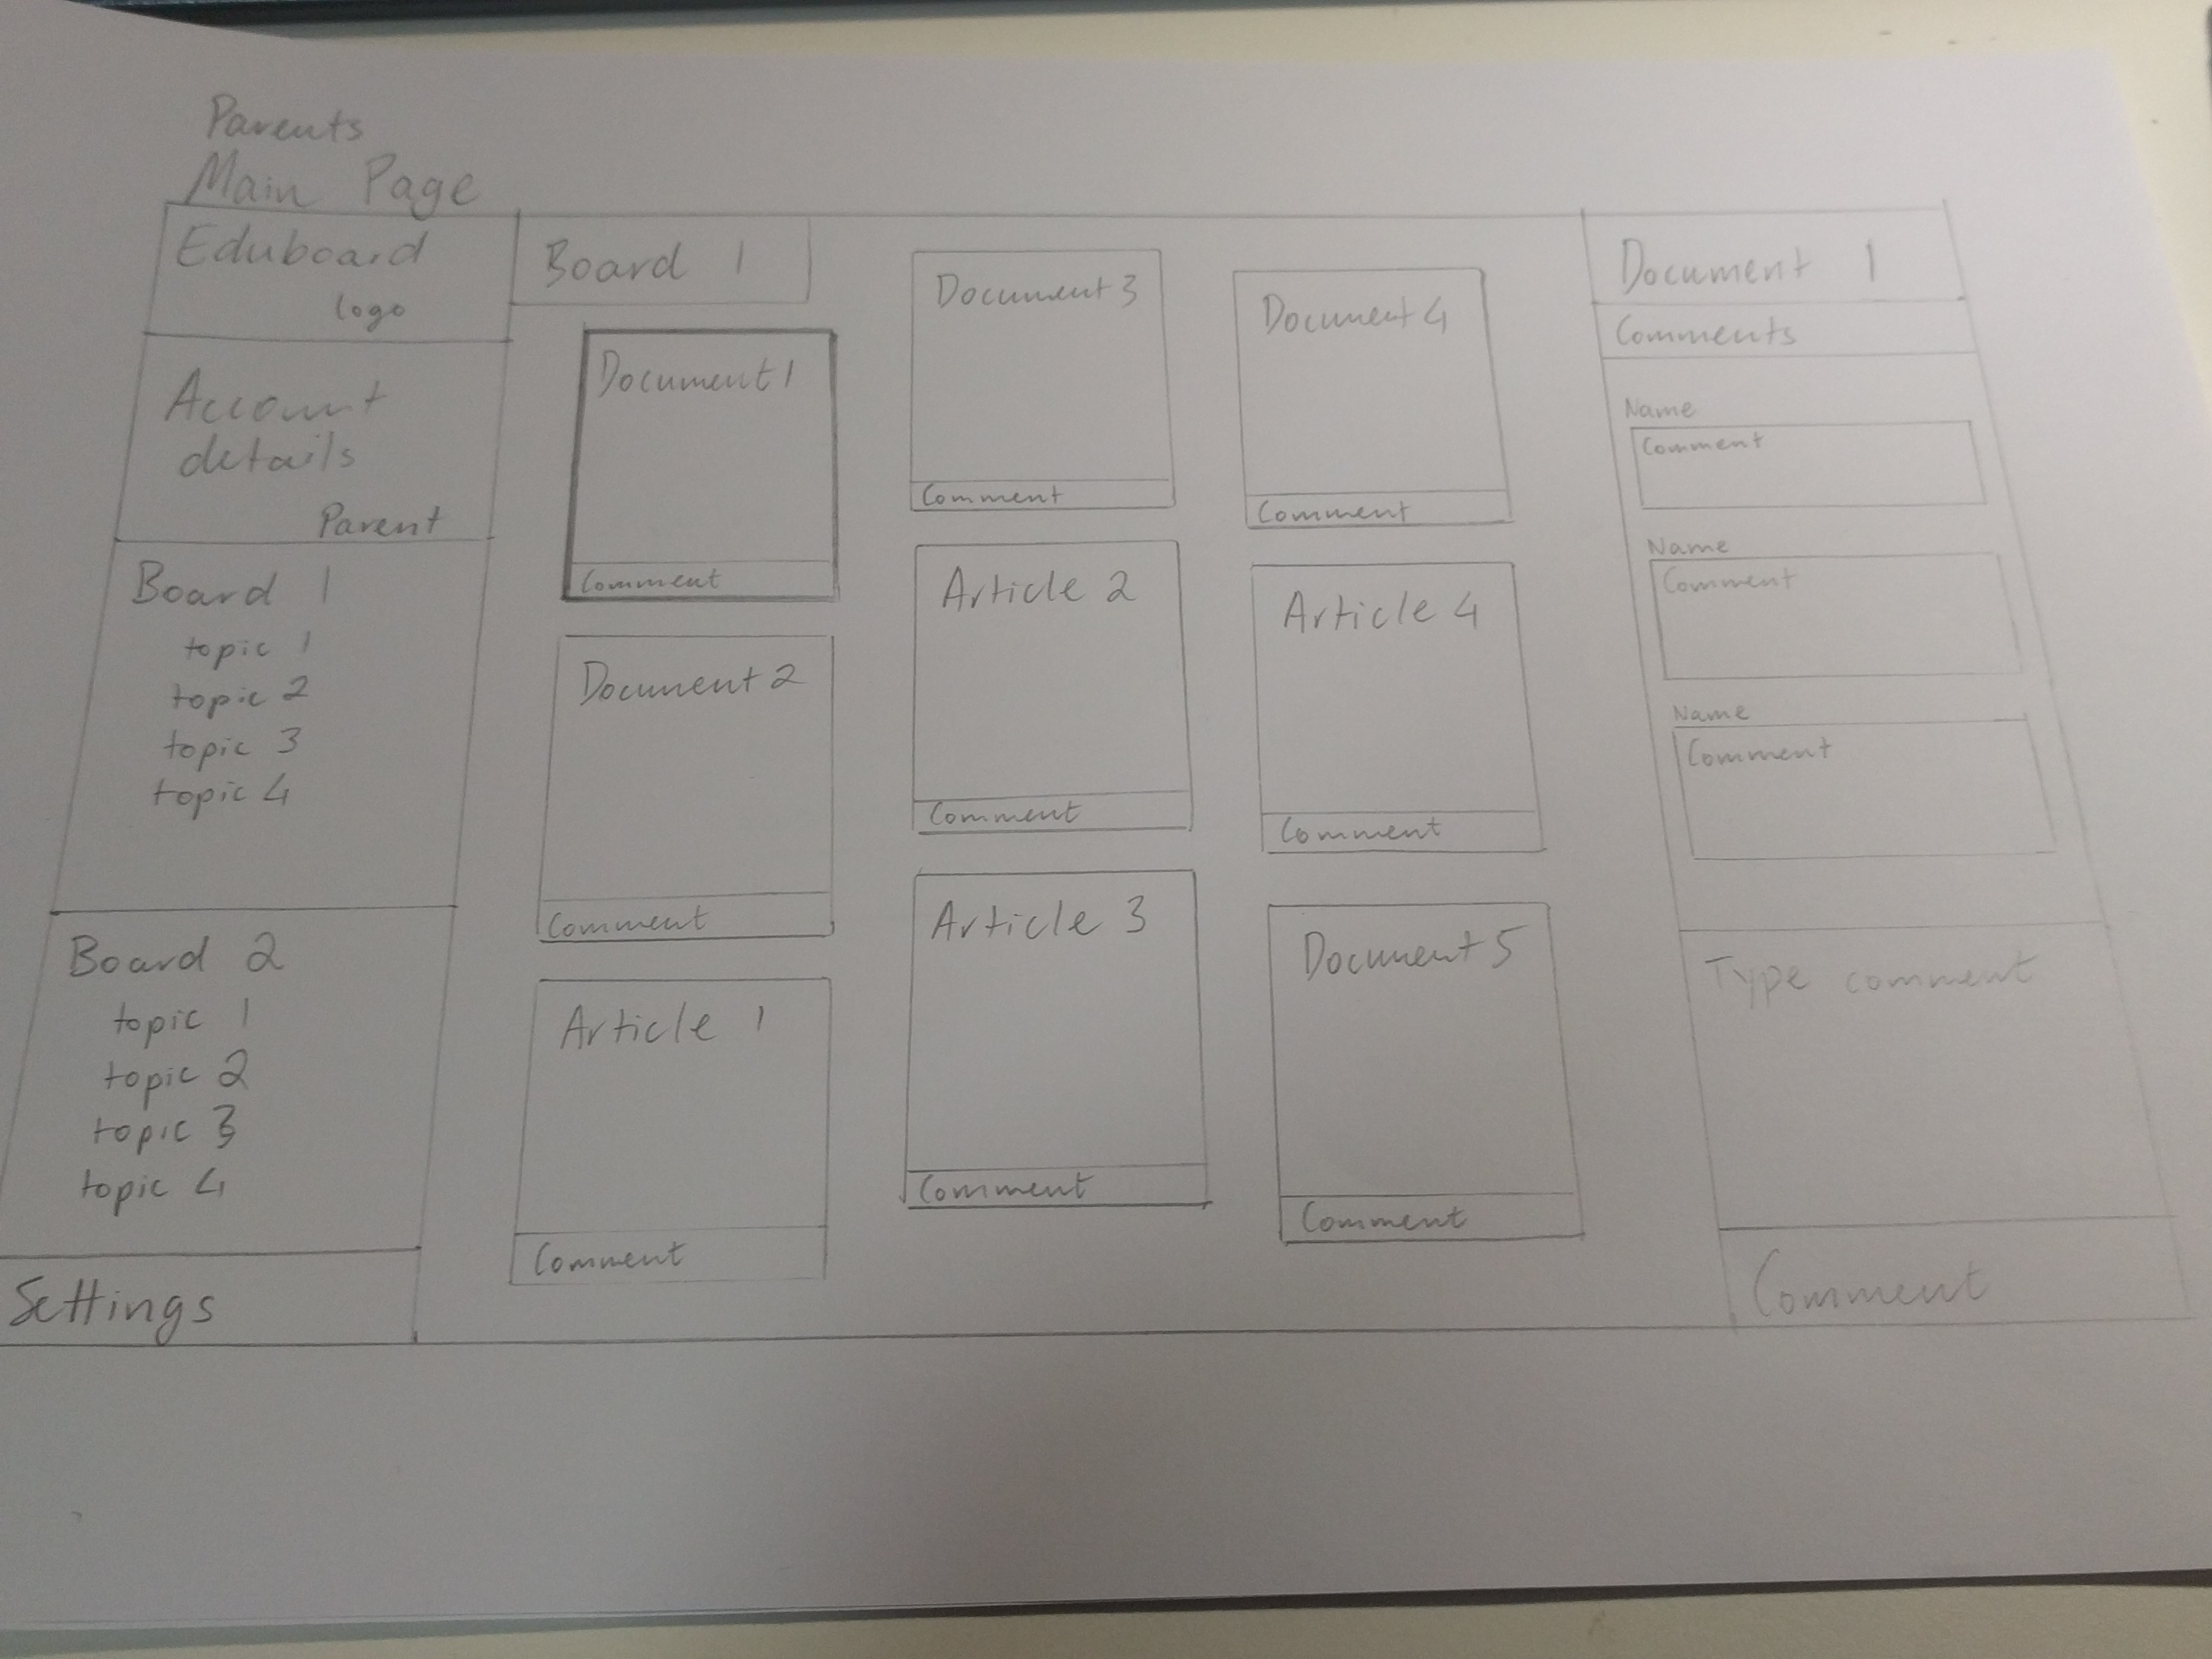 Parents
Main Page
Eduboard
logo
Account
details
Parent
Board 1
topic 1
topic 2
topic 3
topic 4
Board 2
topic 1
topic 2
topic 3
topic 4
Settings
Board 1
Document 1
Comment
Document 2
Comment
Article 1
Comment
Document 3
Comment
Article 2
Comment
Article 3
Comment
Document 4
Comment
Article 4
Comment
Document 5
Comment
Document 1
Comments
Name
Comment
Name
Comment
Name
Comment
Type comment
Comment